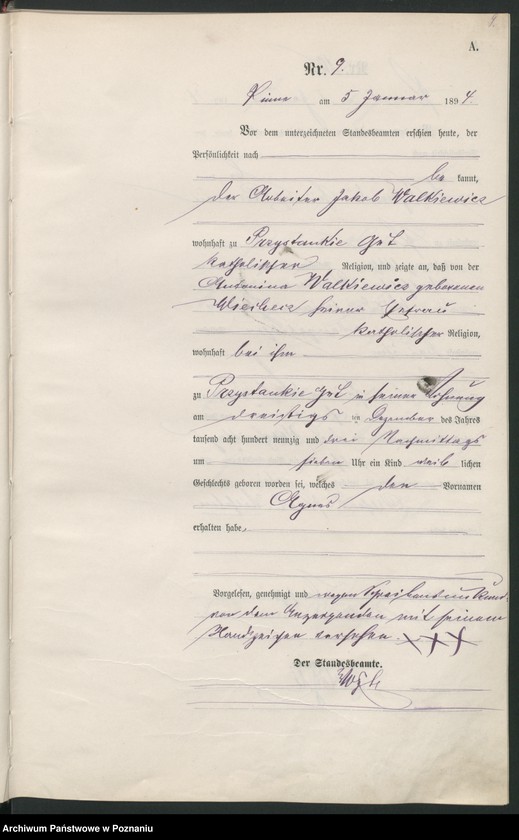 A.
Nr. 9.
Pinne am 5 Januar 1894.
Vor dem unterzeichneten Standesbeamten erschien heute, der
Persönlichkeit nach
be kannt,
der Arbeiter Jakob Walkiewicz
wohnhaft zu Przystankie Gut
katholischer Religion, und zeigte an, daß von der
Antonina Walkiewicz geborenen
seiner Ehefrau
katholischer Religion,
wohnhaft bei ihm
zu Przystankie Gut in seiner Wohnung
am dreißigs ten Dezember des Jahres
tausend acht hundert neunzig und drei Nachmittags
um sieben Uhr ein Kind weib lichen
Geschlechts geboren worden sei, welches den Vornamen
Agnes
erhalten habe.
Vorgelesen, genehmigt und wegen Schreibensunkunde
von dem Anzeigenden mit seinem
Handzeichen versehen. XXX
Der Standesbeamte.
Archiwum Państwowe w Poznaniu